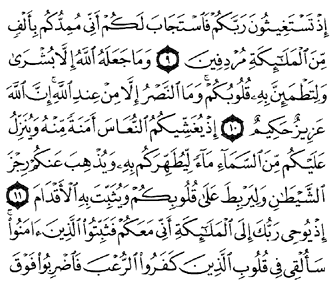 إِذْ تَسْتَغِيثُونَ رَبَّكُمْ فَٱسْتَجَابَ لَكُمْ أَنِّى مُمِدُّكُم بِأَلْفٍ
مِّنَ ٱلْمَلَٰٓئِكَةِ مُرْدِفِينَ ٩ وَمَا جَعَلَهُ ٱللَّهُ إِلَّا بُشْرَىٰ
وَلِتَطْمَئِنَّ بِهِۦ قُلُوبُكُمْ ۚ وَمَا ٱلنَّصْرُ إِلَّا مِنْ عِندِ ٱللَّهِ ۚ إِنَّ ٱللَّهَ
عَزِيزٌ حَكِيمٌ ١٠ إِذْ يُغَشِّيكُمُ ٱلنُّعَاسَ أَمَنَةً مِّنْهُ وَيُنَزِّلُ
عَلَيْكُم مِّنَ ٱلسَّمَآءِ مَآءً لِّيُطَهِّرَكُم بِهِۦ وَيُذْهِبَ عَنكُمْ رِجْزَ
ٱلشَّيْطَٰنِ وَلِيَرْبِطَ عَلَىٰ قُلُوبِكُمْ وَيُثَبِّتَ بِهِ ٱلْأَقْدَامَ ١١
إِذْ يُوحِى رَبُّكَ إِلَى ٱلْمَلَٰٓئِكَةِ أَنِّى مَعَكُمْ فَثَبِّتُوا۟ ٱلَّذِينَ ءَامَنُوا۟ ۚ
سَأُلْقِى فِى قُلُوبِ ٱلَّذِينَ كَفَرُوا۟ ٱلرُّعْبَ فَٱضْرِبُوا۟ فَوْقَ